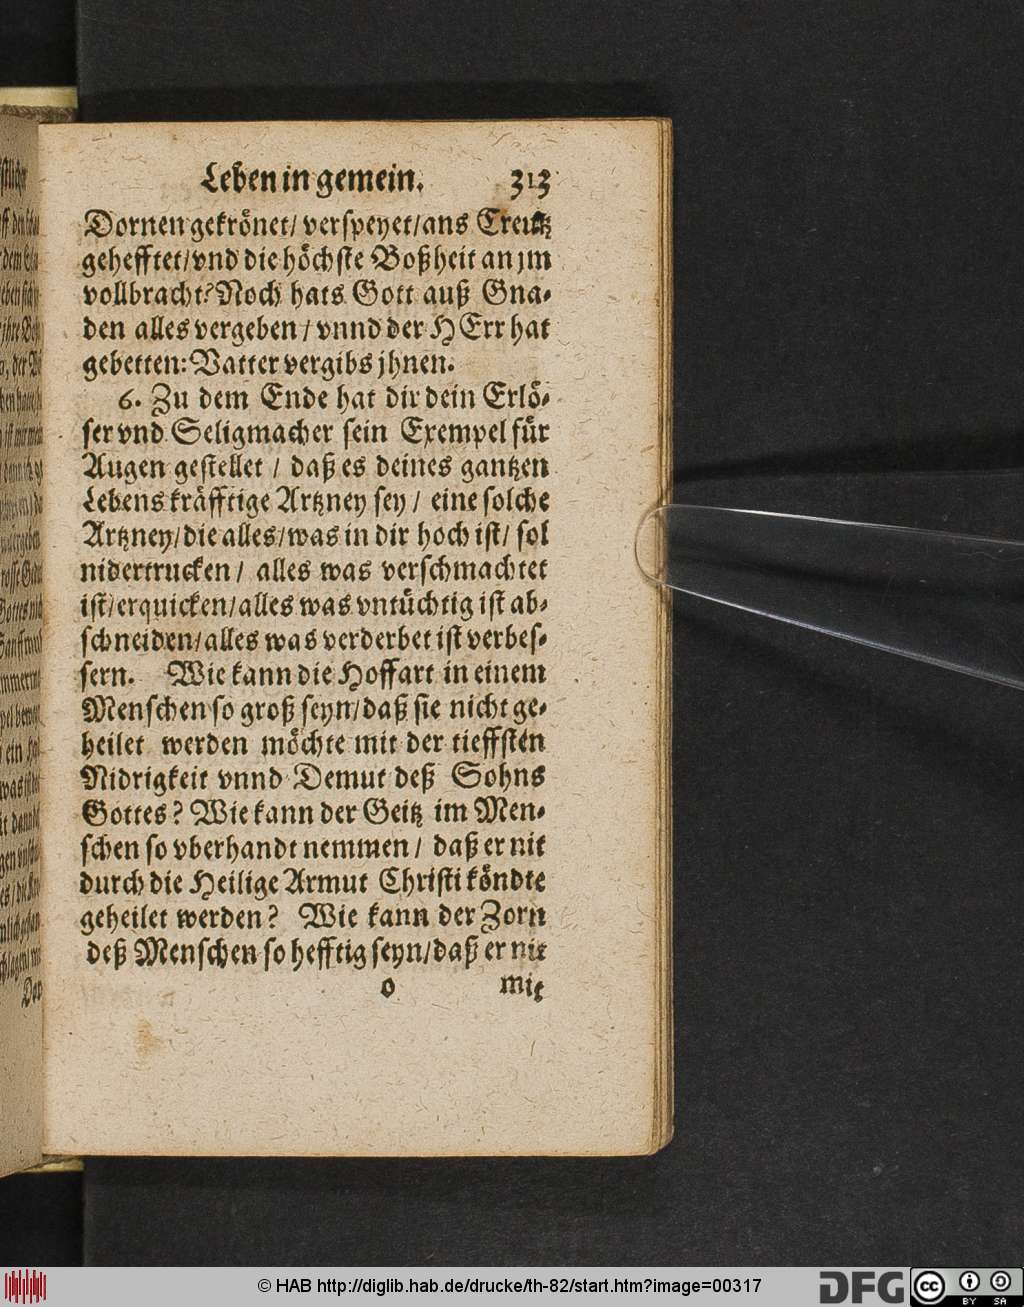 Leben in gemein. 313
Dornen gekrönet/ verspeyet/ans Creutz
gehefftet/vnd die höchste Boßheit an jm
vollbracht? Noch hats Gott auß Gna-
den alles vergeben / vnnd der HErr hat
gebetten: Vatter vergibs jhnen.
6. Zu dem Ende hat dir dein Erlö-
ser vnd Seligmacher sein Exempel für
Augen gestellet / daß es deines gantzen
Lebens kräfftige Artzney sey / eine solche
Artzney/die alles/was in dir hoch ist/ sol
nidertrucken / alles was verschmachtet
ist/erquicken/alles was vntüchtig ist ab-
schneiden/alles was verderbet ist verbes-
sern. Wie kann die Hoffart in einem
Menschen so groß seyn/daß sie nicht ge-
heilet werden möchte mit der tieffsten
Nidrigkeit vnnd Demut deß Sohns
Gottes? Wie kann der Geitz im Men-
schen so vberhandt nemmen / daß er nit
durch die Heilige Armut Christi köndte
geheilet werden? Wie kann der Zorn
deß Menschen so hefftig seyn/daß er nit
o mit
© HAB http://diglib.hab.de/drucke/th-82/start.htm?image=00317
DFG
cc BY SA